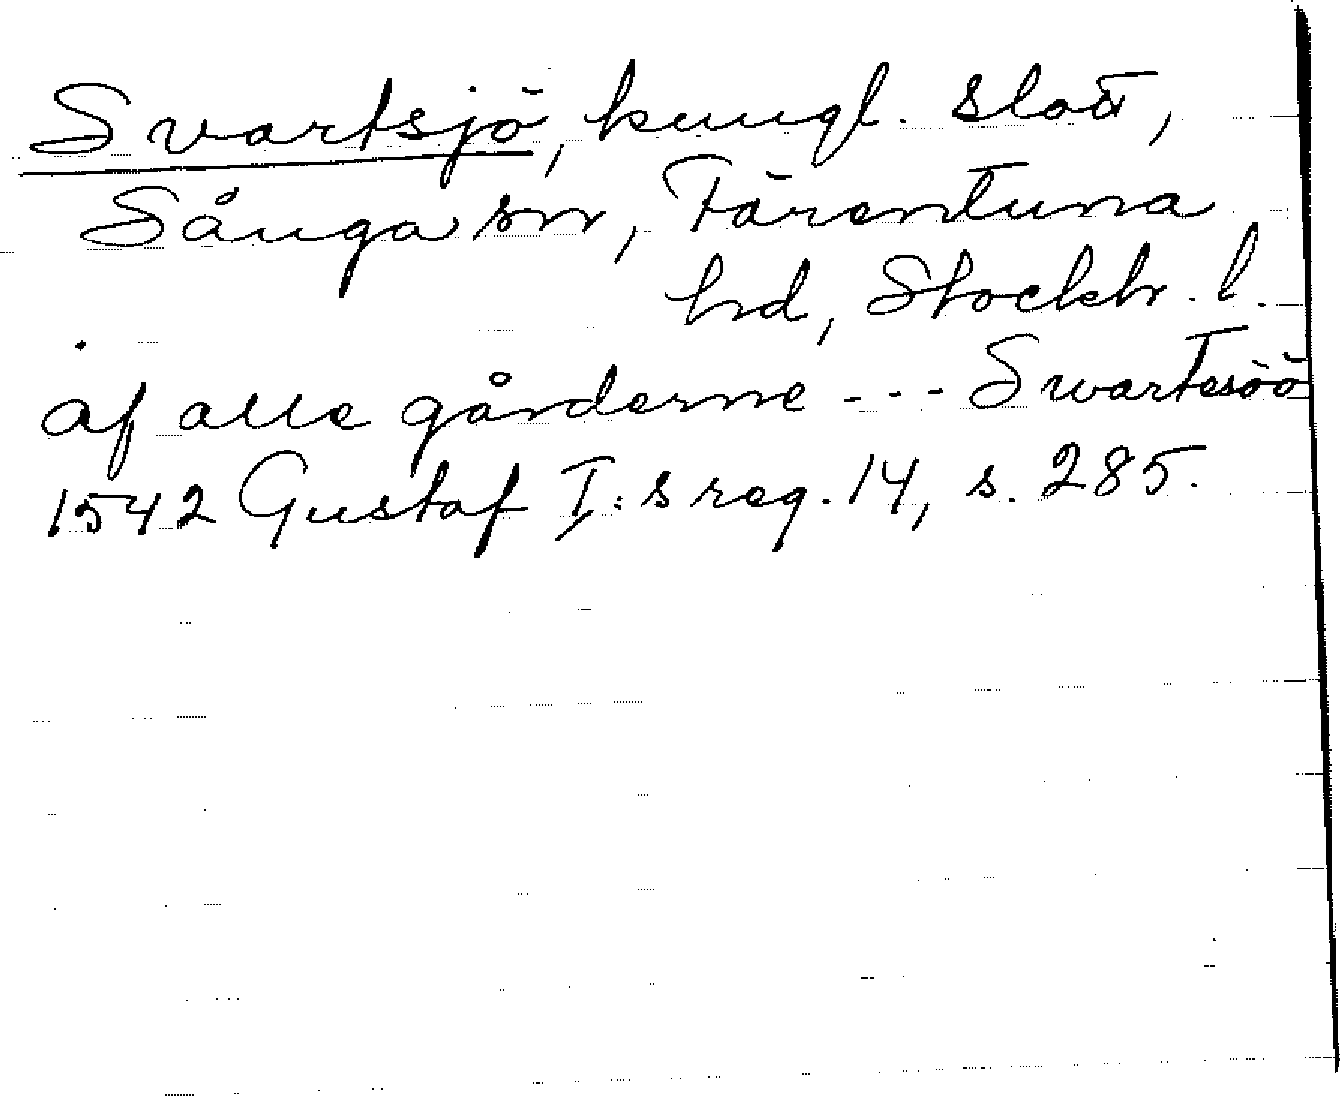 Svartsjö, kungl. slott,
Sånga sn, Färentuna
hd, Stockh. l.
af alle gårderne --- Swartesöö
1542 Gustaf I:s reg. 14, s. 285.